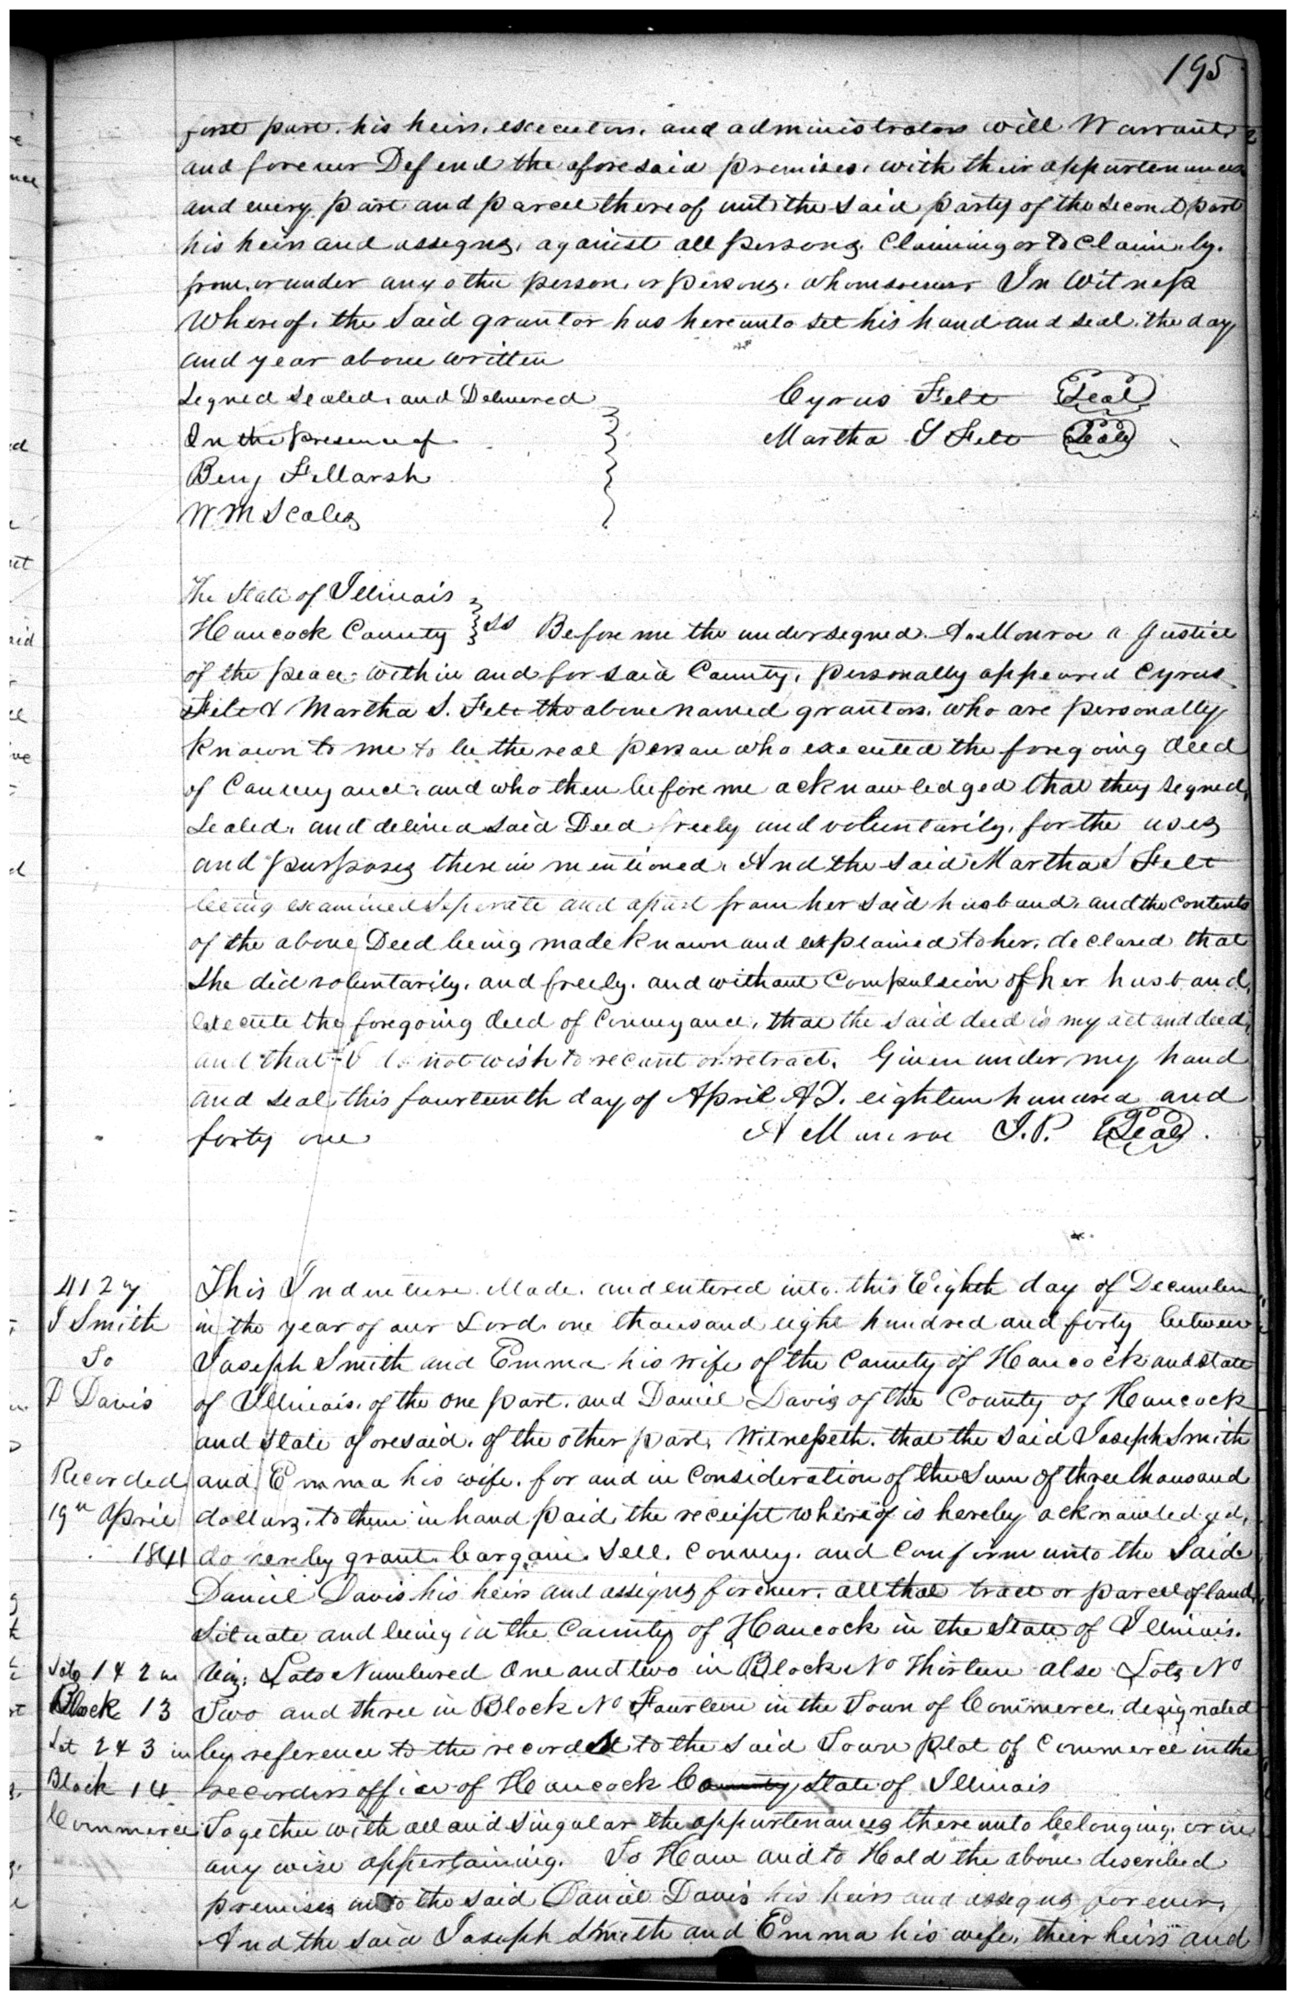 195
first part, his heirs, executors, and administrators will Warrant
and forever Defend the aforesaid premises, with their appurtenances
and every part and parcel thereof unto the said party of the second part
his heirs and assigns, against all persons, Claiming or to Claim, by,
from, or under any other person, or persons, whomsoever In Witness
Whereof, the Said grantor has hereunto set his hand and seal, the day
and year above written
Signed Sealed, and Delivered Cyrus Felt Seal
In the presence of Martha S Felt Seal
Benj
Wm Scales
The State of Illinois
Hancock County } ss Before me the undersigned A. Monroe a Justice
of the peace, within and for said County, personally appeared Cyrus
Felt & Martha S. Felt the above named grantors, who are personally
Known to me to be the real person who executed the foregoing deed
of Conveyance, and who then before me acknowledged that they signed,
Sealed, and delived said Deed freely and voluntarily, for the uses
and purposes therein mentioned. And the said Martha S Felt
being examined Seperate and apart from her said husband, and the contents
of the above Deed being made known and explained to her, declared that
she did voluntarily, and freely, and without Compulsion of her husband,
execute the foregoing deed of Conveyance, that the said deed is my act and deed,
and that I do not wish to recant or retract. Given under my hand
and seal, this fourteenth day of April AD. eighteen hundred and
forty one A Monroe J.P. Seal
4127 This Indenture Made, and entered into this Eighth day of December
J Smith in the year of our Lord, one thousand eight hundred and forty between
To Joseph Smith and Emma his wife of the County of Hancock and State
D Davis of Illinois, of the one part, and Daniel Davis of the County of Hancock
and State aforesaid, of the other part, Witnesseth, that the said Joseph Smith
Recorded and Emma his wife, for and in consideration of the Sum of three thousand
19th April dollars, to them in hand paid, the receipt whereof is hereby acknowledged,
1841 do hereby grant, bargain, Sell, Convey, and Conform unto the Said
Daniel Davis his heirs and assigns forever, all that tract or parcel of land,
Situate and being in the County of Hancock in the State of Illinois.
Lots 1 & 2 in Viz: Lots Numbered One and two in Block No Thirteen also Lots No
Block 13 Two and three in Block No Fourteen in the Town of Commerce, designated
Lot 2 & 3 in by reference to the record to the said Town Plat of Commerce in the
Block 14 recorders office of Hancock County State of Illinois
Commerce Together with all and Singular the appurtenances thereunto belonging, or in
any wise appertaining. To Have and to Hold the above described
premises unto the said Daniel Davis his heirs and assigns forever,
And the said Joseph Smith and Emma his wife, their heirs and